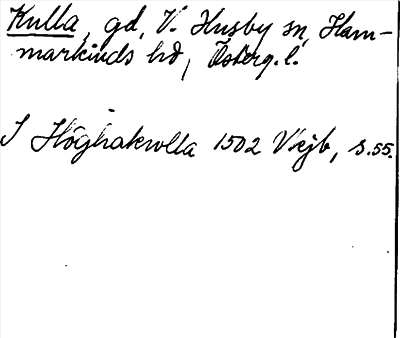 Kulla, gd, V. Husby sn, Ham-
markinds hd, Österg. l.
I Höghakulla 1502 Vkjb, s. 55.